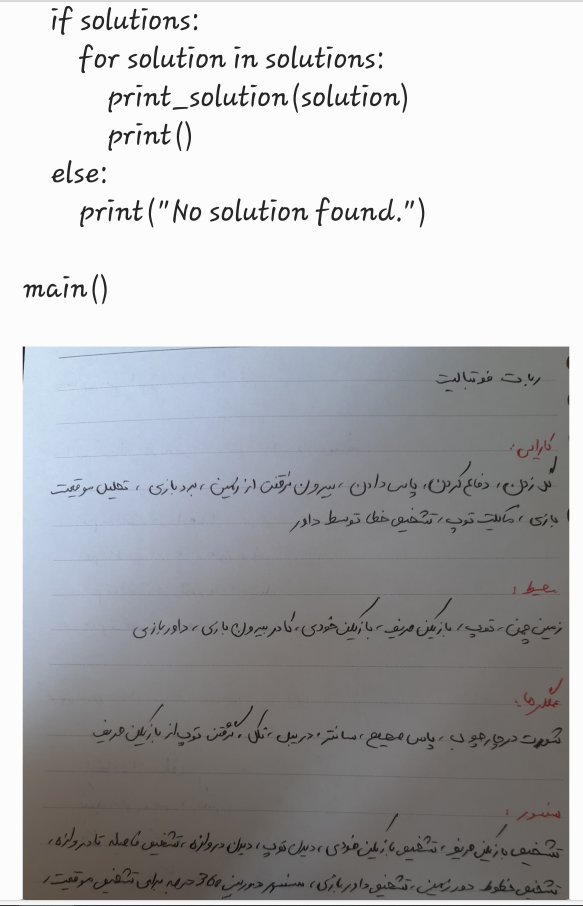 if solutions:
for solution in solutions:
print_solution(solution)
print()
else:
print("No solution found.")
main()
ربات فوتبالیست
کارایی:
گل زدن، دفاع کردن، پاس دادن، بیرون نرفتن از زمین، برد بازی، تحلیل موقعیت
بازی، مالکیت توپ، تشخیص خطا توسط داور
محیط:
زمین چمن، توپ، بازیکن حریف، بازیکن خودی، کادر بیرون بازی، داور بازی
عملگرها:
شوت در چارچوب، پاس صحیح، سانتر، دریبل، تکل، گرفتن توپ از بازیکن حریف
سنسور:
تشخیص بازیکن حریف، تشخیص بازیکن خودی، دیدن توپ، دیدن دروازه، تشخیص فاصله تا دروازه،
تشخیص خطوط دور زمین، تشخیص داور بازی، سنسور دوربین 360 درجه برای تشخیص موقعیت،